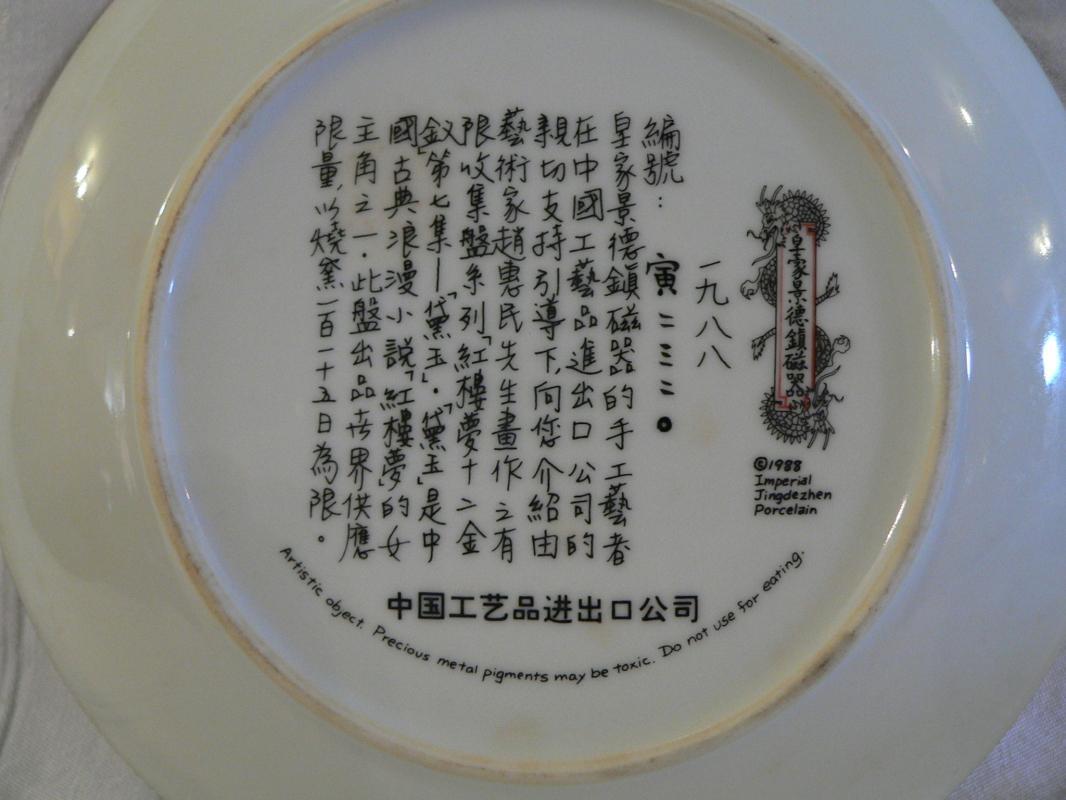 皇家景德鎮磁器
©1988
Imperial
Jingdezhen
Porcelain
一九八八
編號：寅二三二〇
皇家景德鎮磁器的手工藝者
在中國工藝品進出口公司的
親切支持引導下,向您介紹由
藝術家趙惠民先生畫作之有
限收集盤系列「紅樓夢十二金
釵」第七集—「黛玉」·「黛玉」是中
國古典浪漫小説「紅樓夢」的女
主角之一·此盤出品世界供應
限量,以燒窯一百一十五日為限。
中国工艺品进出口公司
Artistic object. Precious metal pigments may be toxic. Do not use for eating.